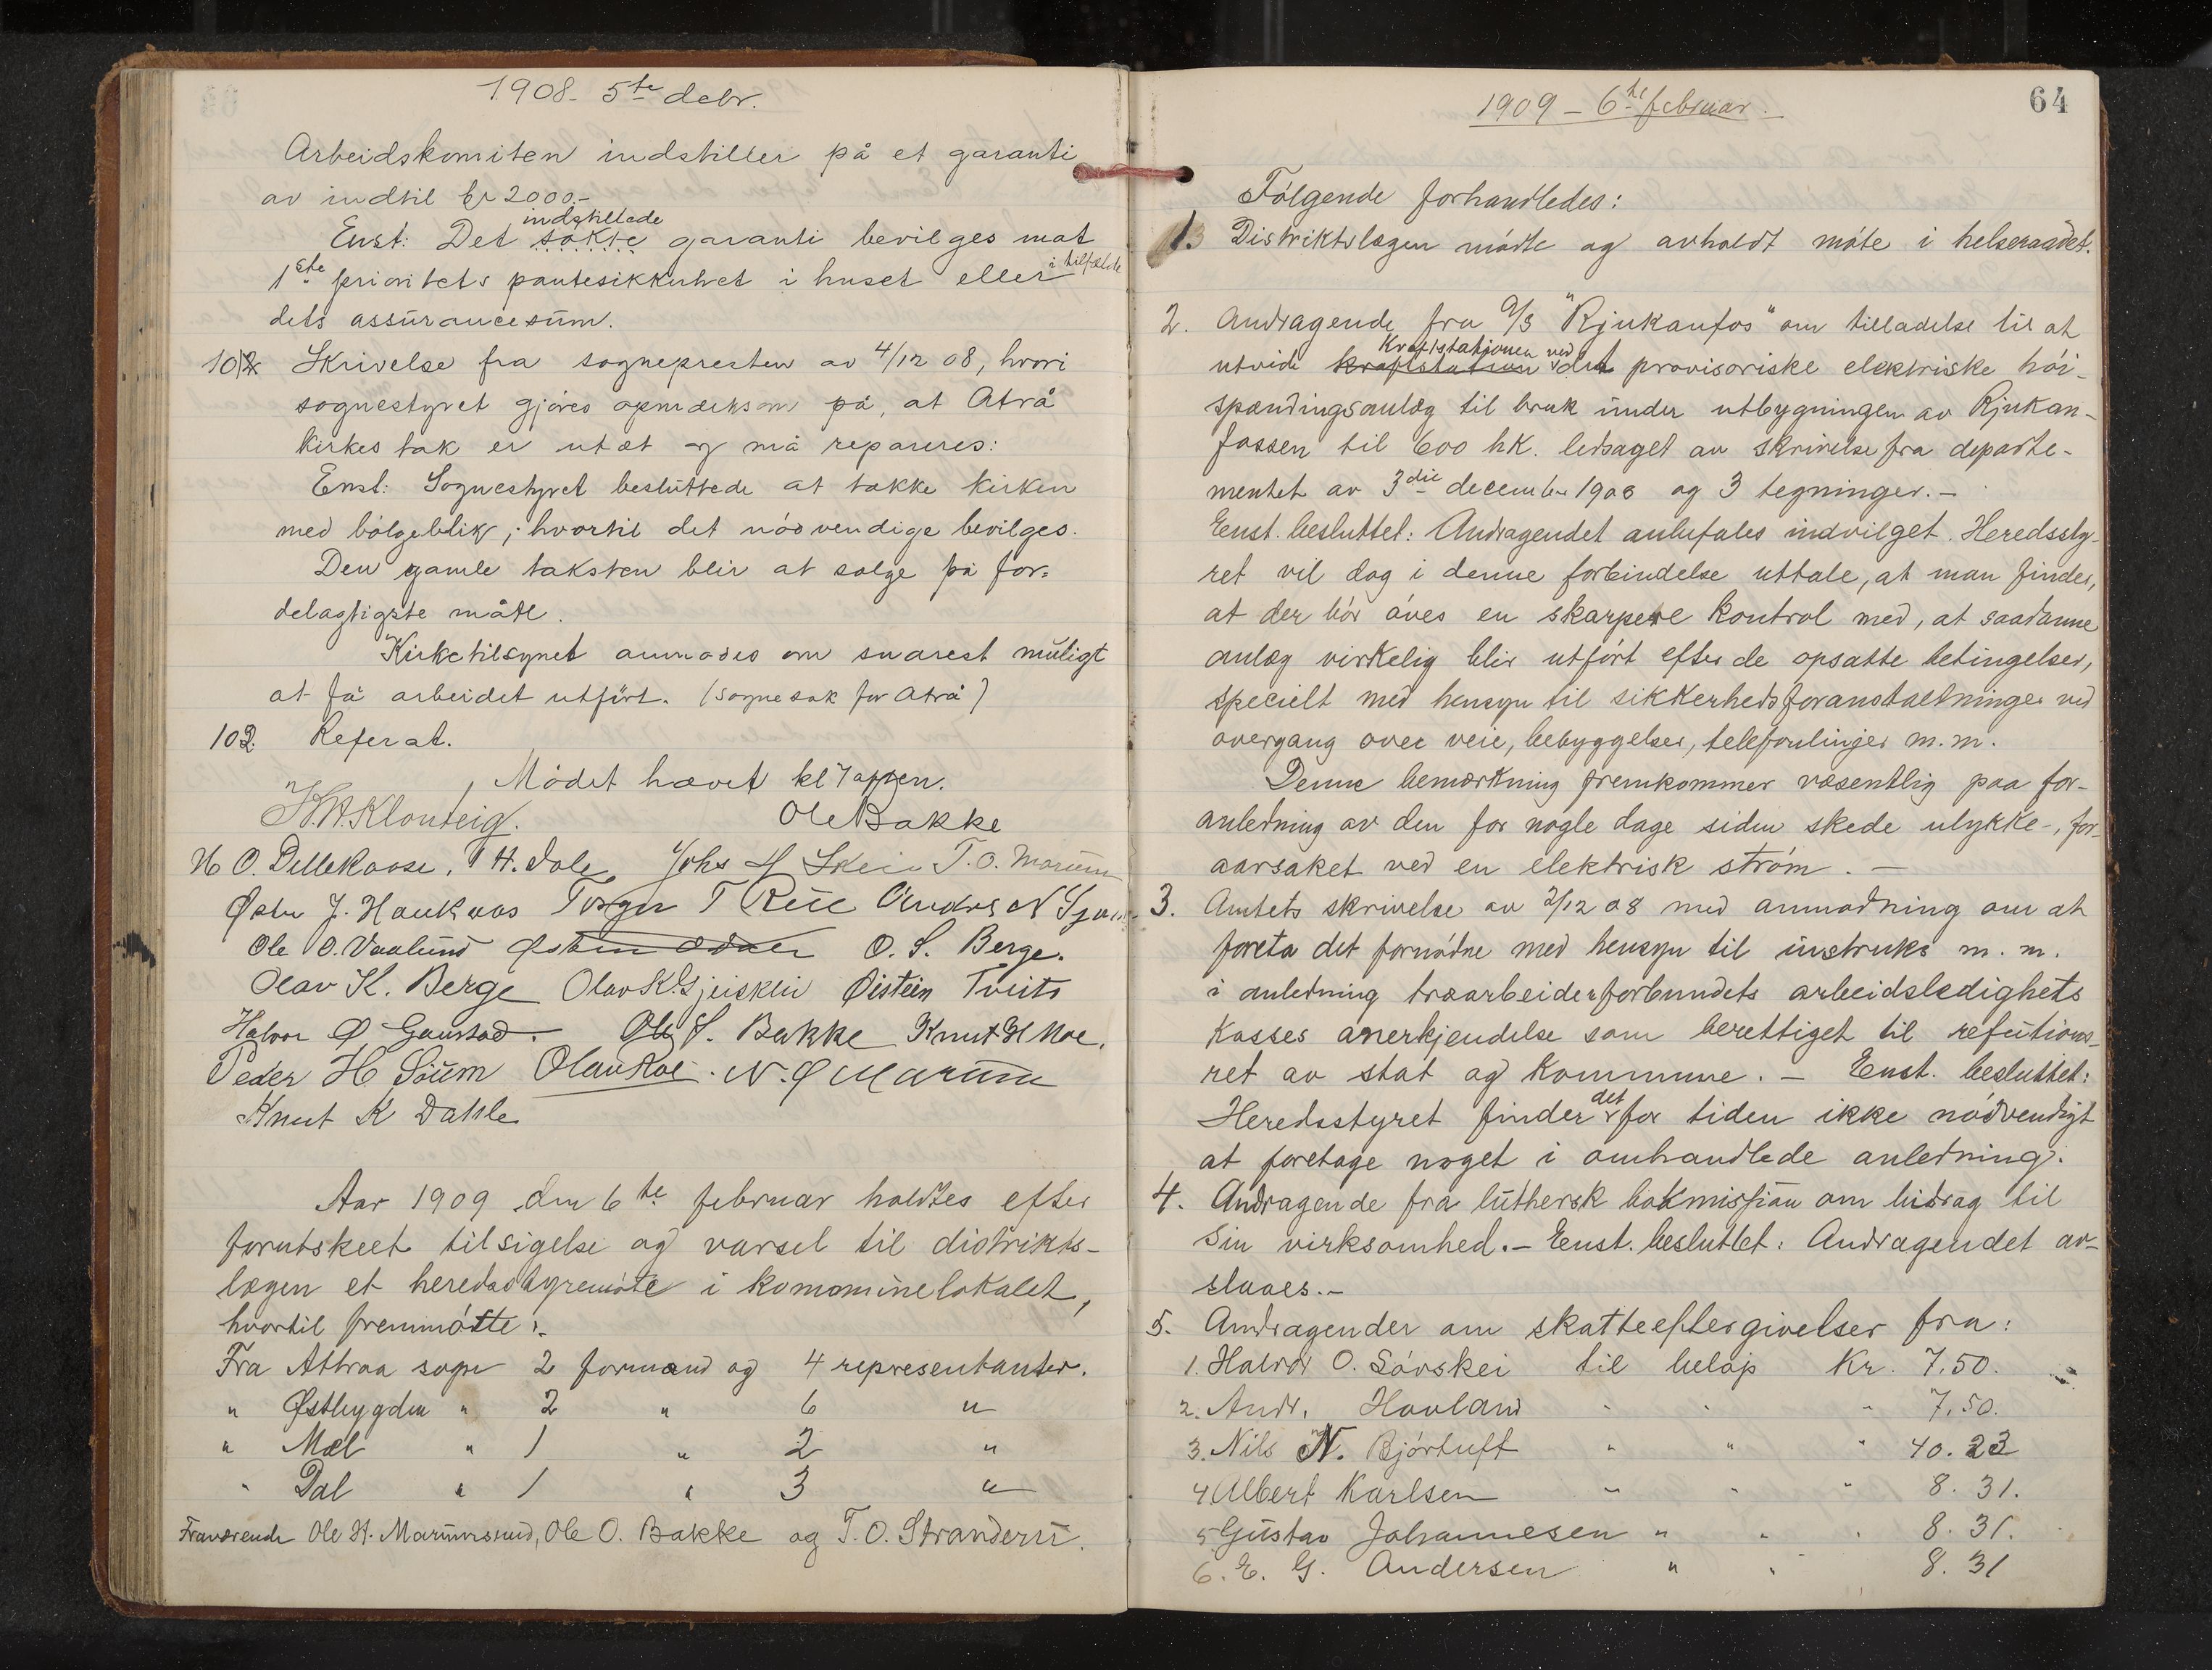 1908 - 5te debr.
Arbeidskomiten indstiller på et garanti
av indtil kr 2000.-
indstillede
Enst: Det søkte garanti bevilges mot
1ste prioritets pantesikkerhet i huset eller i tilfælde
dets assurancesum.
101 Skrivelse fra sognepresten av 4/12 08, hvori
sognestyret gjøres opmerksom på, at Atrå
kirkes tak er utæt og må repareres:
Enst: Sognestyret besluttede at takke kirken
med bølgeblik; hvortil det nødvendige bevilges.
Den gamle taksten blir at sælge på for-
delagtigste måte.
Kirketilsynet anmodes om snarest muligt
at få arbeidet utført. (sognesak for Atrå)
102. Referat.
Mødet hævet kl 7 aften.
H.H.Klonteig. Ole Bakke
H O. Dellekaase. T H. Dale Johs H Skeie T.O. Marum
Østen J. Haukaas Torger T Rue Anders N
Ole O. Vaalund O. S. Berge.
Olav K. Berge Olav K. Gjeisklii Øistein Tveito
Halvor Ø Gaustad. Ole S. Bakke Knut H Moe.
Peder H Søum Olav Roe. N. Ø Marum
Knut K Dahle
Aar 1909 den 6te februar holdtes efter
forutskeet tilsigelse og varsel til distrikts-
lægen et heredsstyremøte i kommunelokalet,
hvortil fremmøtte:
Fra Attraa sogn 2 formænd og 4 representanter.
" Østbygden " 2 " 6 "
" Mæl " 1 " 2 "
" Dal " 1 " 3 "
Fraværende Ole H. Marumsrud, Ole O. Bakke og T. O. Stranderu.
64
1909 - 6te februar.
Følgende forhandledes:
1. Distriktslægen møtte og avholdt møte i helseraadet.
2. Andragende fra A/S "Rjukanfos" om tilladelse til at
Kraftstationen ved
utvide kraftstation det provisoriske elektriske høi-
spændingsanlæg til bruk under utbygningen av Rjukan-
fossen til 600 hk. ledsaget av skrivelse fra departe-
mentet av 3die december 1908 og 3 tegninger. -
Enst. besluttet: Andragendet anbefales indvilget. Heredssty-
ret vil dog i denne forbindelse uttale, at man finder,
at der bør øves en skarpere kontrol med, at saadanne
anlæg virkelig blir utført efter de opsatte betingelser,
specielt med hensyn til sikkerhedsforanstaltninger ved
overgang over veie, bebyggelser, telefonlinjer m.m.
Denne bemerkning fremkommer væsentlig paa for-
anledning av den for nogle dage siden skede ulykke -, for-
aarsaket ved en elektrisk strøm. -
3. Amtets skrivelse av 2/12 08 med anmodning om at
foreta det fornødne med hensyn til instruks m. m.
i anledning træarbeiderforbundets arbeidsledighets
kasses anerkjendelse som berettiget til refutions-
ret av stat og kommune. - Enst. besluttet:
Heredsstyret finder det for tiden ikke nødvendigt
at foretage noget i omhandlede anledning.
4. Andragende fra luthersk bokmission om bidrag til
sin virksomhed. - Enst. besluttet: Andragendet av-
slaaes. -
5. Andragender om skatteeftergivelser fra:
1. Halvor O. Søvskei til beløp Kr. 7.50.
2. Andr. Hovland " " " 7.50.
3. Nils N. Bjørtuft " " " 40.23
4. Albert Karlsen " " " 8.31.
5. Gustav Johannesen " " " 8.31.
6. E. G. Andersen " " 8.31